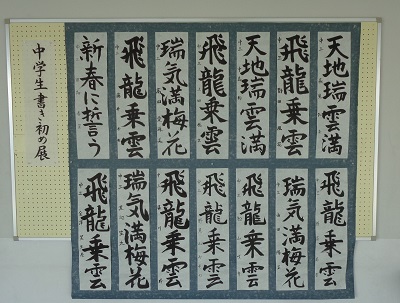 中学生書き初め展
天地瑞雲満
飛龍乗雲
天地瑞雲満
飛龍乗雲
瑞気満梅花
飛龍乗雲
新春に誓う
飛龍乗雲
瑞気満梅花
飛龍乗雲
飛龍乗雲
飛龍乗雲
瑞気満梅花
飛龍乗雲